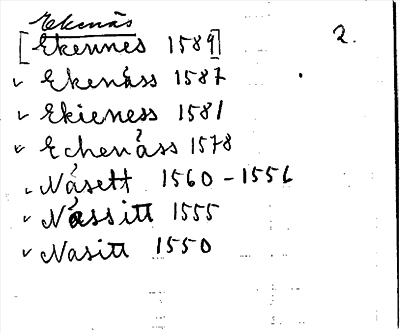 Ekenäs
[Ekennes 1589] 2.
✓ Ekenåss 1587
✓ Ekieness 1581
✓ Echenåss 1578
✓ Nåsett 1560-1556
✓ Nåssitt 1555
✓ Nasitt 1550